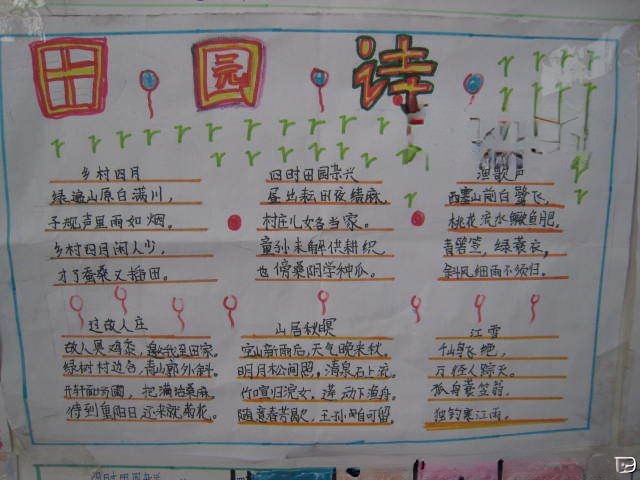 田园诗
乡村四月
绿遍山原白满川，
子规声里雨如烟。
乡村四月闲人少，
才了蚕桑又插田。
四时田园杂兴
昼出耘田夜绩麻，
村庄儿女各当家。
童孙未解供耕织，
也傍桑阴学种瓜。
渔歌子
西塞山前白鹭飞，
桃花流水鳜鱼肥，
青箬笠，绿蓑衣，
斜风细雨不须归。
过故人庄
故人具鸡黍，邀我至田家。
绿树村边合，青山郭外斜。
开轩面场圃，把酒话桑麻。
待到重阳日，还来就菊花。
山居秋暝
空山新雨后，天气晚来秋。
明月松间照，清泉石上流。
竹喧归浣女，莲动下渔舟。
随意春芳歇，王孙自可留。
江雪
千山鸟飞绝，
万径人踪灭。
孤舟蓑笠翁，
独钓寒江雨。